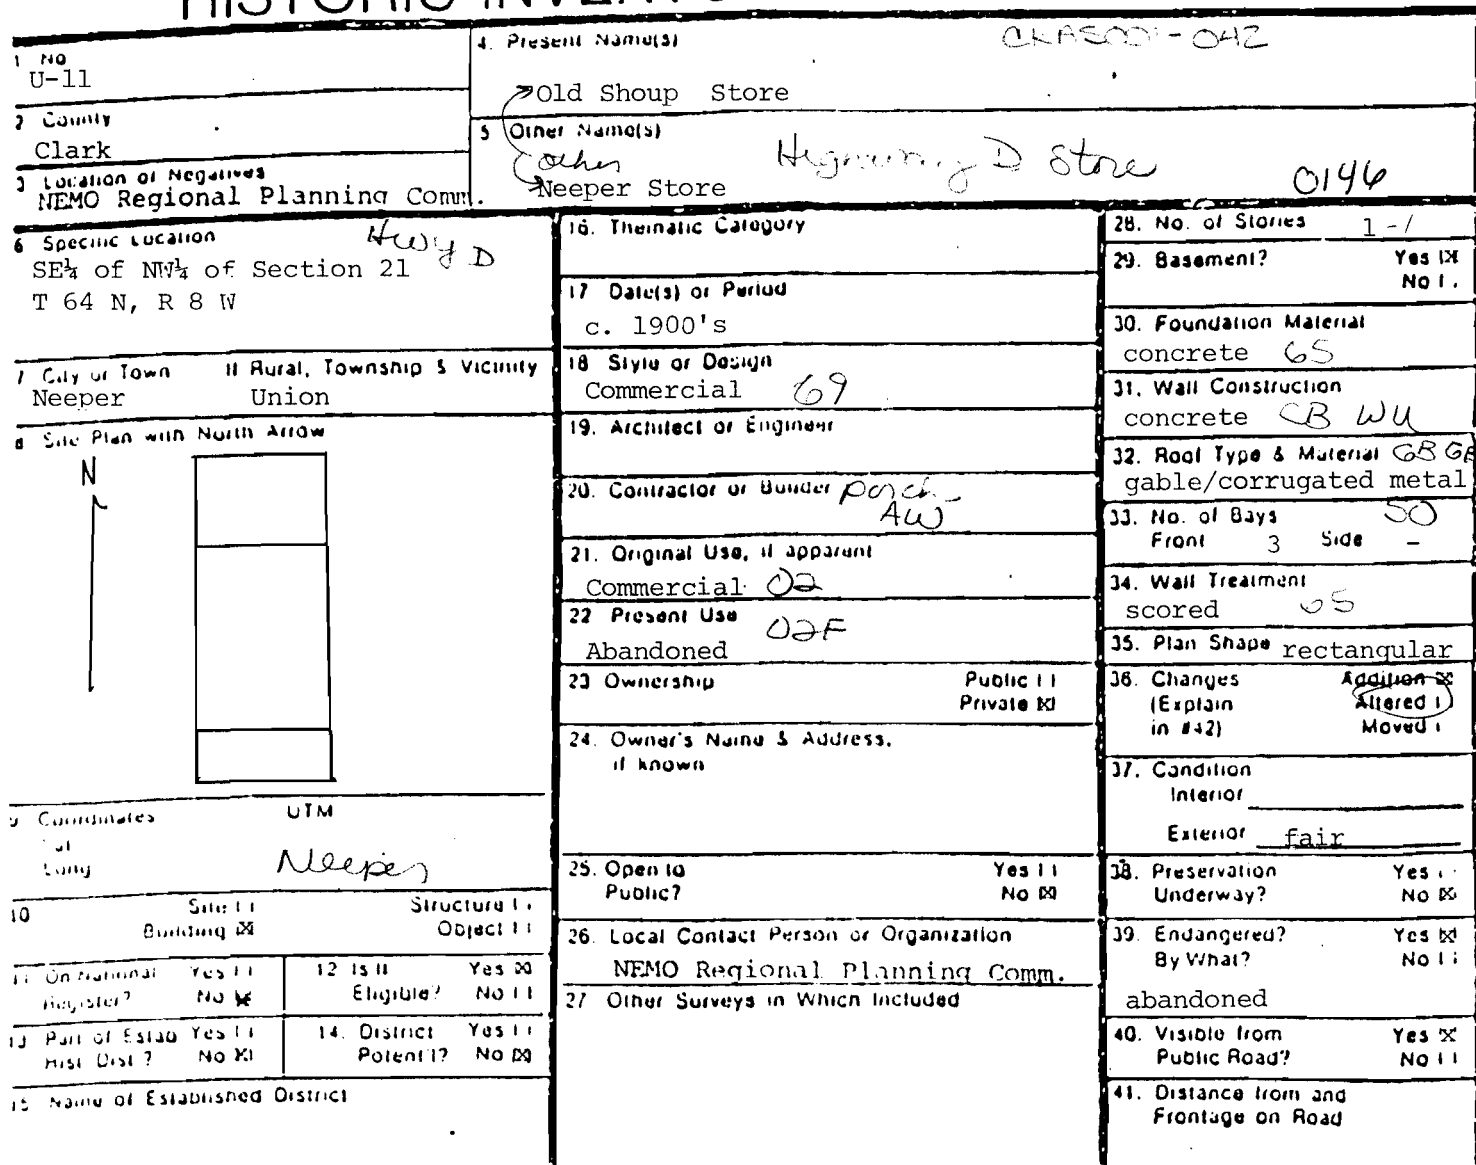 HISTORIC INVENTO
1 No
U-11
4. Present Name(s)
CKAS001-042
Old Shoup Store
2 County
Clark
5 Other Name(s)
other
Highway D Store
Neeper Store
0146
3 Location of Negatives
NEMO Regional Planning Comm.
6 Specific Location
Hwy D
SE¼ of NW¼ of Section 21
T 64 N, R 8 W
7 City or Town If Rural, Township & Vicinity
Neeper Union
8 Site Plan with North Arrow
N
9 Coordinates UTM
Lat
Long
Neeper
10 Site [ ] Structure [ ]
Building [X] Object [ ]
11 On National Register? Yes [ ] No [X]
12 Is It Eligible? Yes [X] No [ ]
13 Part of Estab Hist. Dist.? Yes [ ] No [X]
14. District Potent'l? Yes [ ] No [X]
15 Name of Established District
16. Thematic Category
17 Date(s) or Period
c. 1900's
18 Style or Design
Commercial 69
19. Architect or Engineer
20. Contractor or Builder
porch
AW
21. Original Use, if apparent
Commercial 02
22 Present Use
02F
Abandoned
23 Ownership Public [ ]
Private [X]
24. Owner's Name & Address,
if known
25. Open to Yes [ ]
Public? No [X]
26. Local Contact Person or Organization
NEMO Regional Planning Comm.
27 Other Surveys in Which Included
28. No. of Stories 1-1
29. Basement? Yes [X]
No [ ]
30. Foundation Material
concrete 65
31. Wall Construction
concrete CB WU
32. Roof Type & Material GB
gable/corrugated metal
33. No. of Bays 50
Front 3 Side -
34. Wall Treatment
scored 65
35. Plan Shape rectangular
36. Changes Addition [X]
(Explain Altered [ ]
in #42) Moved [ ]
37. Condition
Interior
Exterior fair
38. Preservation Yes [ ]
Underway? No [X]
39. Endangered? Yes [X]
By What? No [ ]
abandoned
40. Visible from Yes [X]
Public Road? No [ ]
41. Distance from and
Frontage on Road